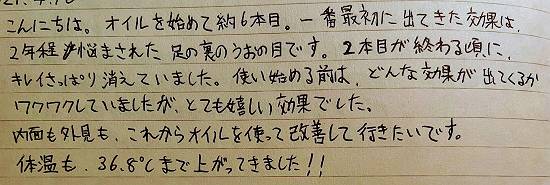 こんにちは。オイルを始めて約6本目。一番最初に出てきた効果は、
2年程悩まされた足の裏のうおの目です。2本目が終わる頃に、
キレイさっぱり消えていました。使い始める前は、どんな効果が出てくるか
ワクワクしていましたが、とても嬉しい効果でした。
内面も外見も、これからオイルを使って改善して行きたいです。
体温も、36.8℃まで上がってきました!!